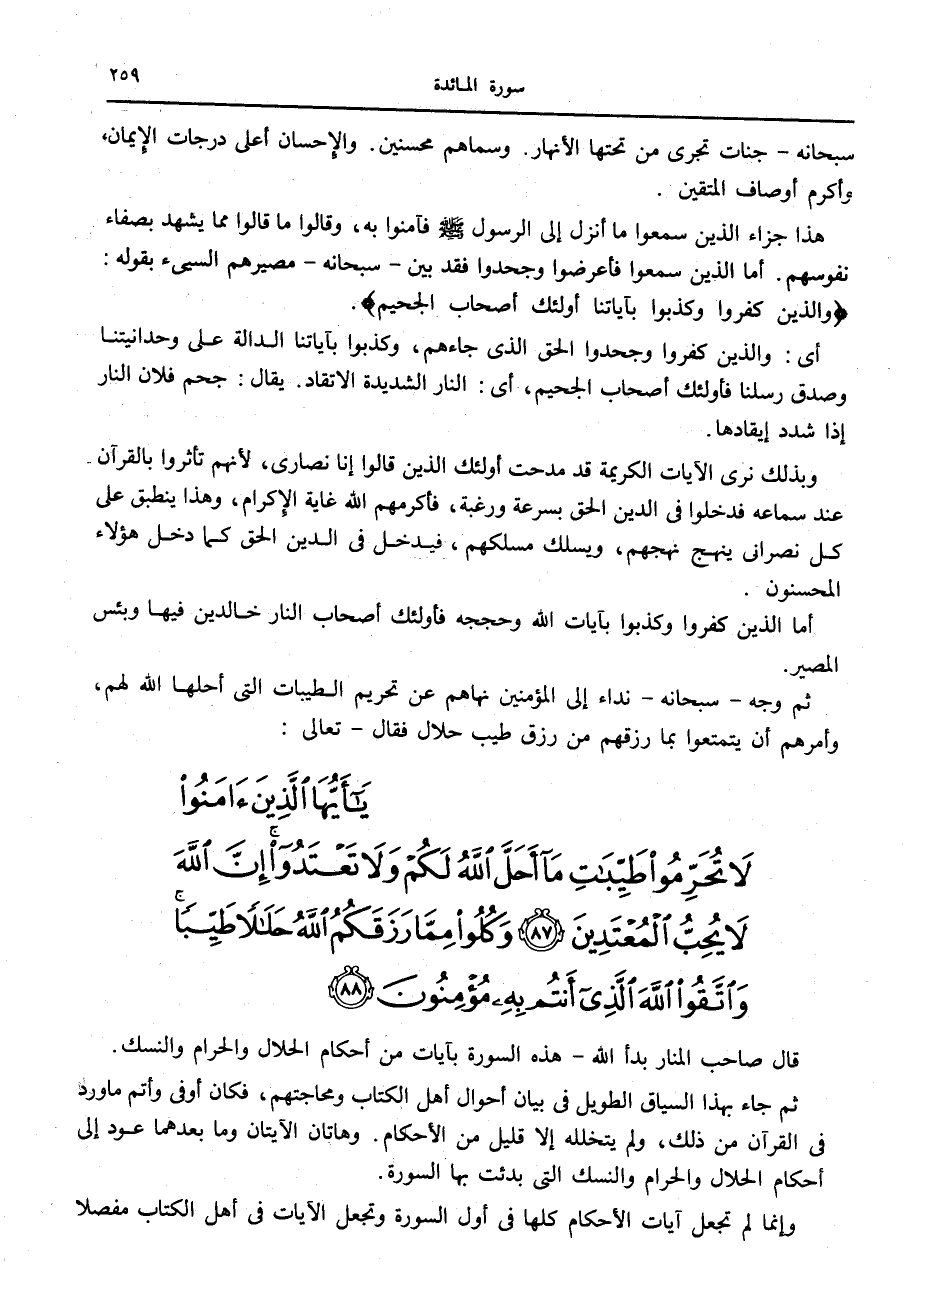 سورة المائدة ٢٥٩
سبحانه – جنات تجرى من تحتها الأنهار. وسماهم محسنين. والإحسان أعلى درجات الإيمان،
وأكرم أوصاف المتقين .
هذا جزاء الذين سمعوا ما أنزل إلى الرسول ﷺ فآمنوا به، وقالوا ما قالوا مما يشهد بصفاء
نفوسهم. أما الذين سمعوا فأعرضوا وجحدوا فقد بين – سبحانه – مصيرهم السيىء بقوله :
﴿والذين كفروا وكذبوا بآياتنا أولئك أصحاب الجحيم﴾.
أى : والذين كفروا وجحدوا الحق الذى جاءهم، وكذبوا بآياتنا الدالة على وحدانيتنا
وصدق رسلنا فأولئك أصحاب الجحيم، أى : النار الشديدة الاتقاد. يقال : جحم فلان النار
إذا شدد إيقادها.
وبذلك نرى الآيات الكريمة قد مدحت أولئك الذين قالوا إنا نصارى، لأنهم تأثروا بالقرآن
عند سماعه فدخلوا فى الدين الحق بسرعة ورغبة، فأكرمهم الله غاية الإكرام، وهذا ينطبق على
كل نصرانى ينهج نهجهم، ويسلك مسلكهم، فيدخل فى الدين الحق كما دخل هؤلاء
المحسنون .
أما الذين كفروا وكذبوا بآيات الله وحججه فأولئك أصحاب النار خالدين فيها وبئس
المصير.
ثم وجه – سبحانه – نداء إلى المؤمنين نهاهم عن تحريم الطيبات التى أحلها الله لهم،
وأمرهم أن يتمتعوا بما رزقهم من رزق طيب حلال فقال – تعالى :
يَٰٓأَيُّهَا ٱلَّذِينَ ءَامَنُوا۟
لَا تُحَرِّمُوا۟ طَيِّبَٰتِ مَآ أَحَلَّ ٱللَّهُ لَكُمْ وَلَا تَعْتَدُوٓا۟ ۚ إِنَّ ٱللَّهَ
لَا يُحِبُّ ٱلْمُعْتَدِينَ ٨٧ وَكُلُوا۟ مِمَّا رَزَقَكُمُ ٱللَّهُ حَلَٰلًا طَيِّبًا ۚ
وَٱتَّقُوا۟ ٱللَّهَ ٱلَّذِىٓ أَنتُم بِهِۦ مُؤْمِنُونَ ٨٨
قال صاحب المنار بدأ الله – هذه السورة بآيات من أحكام الحلال والحرام والنسك.
ثم جاء بهذا السياق الطويل فى بيان أحوال أهل الكتاب ومحاجتهم، فكان أوفى وأتم ماورد
فى القرآن من ذلك، ولم يتخلله إلا قليل من الأحكام. وهاتان الآيتان وما بعدهما عود إلى
أحكام الحلال والحرام والنسك التى بدئت بها السورة.
وإنما لم تجعل آيات الأحكام كلها فى أول السورة وتجعل الآيات فى أهل الكتاب مفصلا